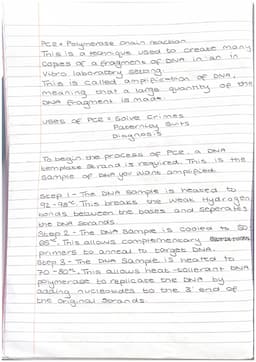 PCR = Polymerase chain reaction
This is a technique used to create many
copies of a fragment of DNA in an in
vitro laboratory setting.
This is called amplification of DNA,
meaning that a large quantity of the
DNA fragment is made.
USES OF PCR = Solve Crimes
Paternity Suits
Diagnosis
To begin the process of PCR, a DNA
template strand is required. This is the
sample of DNA you want amplified.
Step 1 - The DNA sample is heated to
92-98°C. This breaks the weak hydrogen
bonds between the bases and seperates
the DNA strands.
Step 2 - The DNA sample is cooled to 50
65°C. This allows complementary
primers to anneal to target DNA.
Step 3 - The DNA sample is heated to
70-80°C. This allows heat-tollerant DNA
polymerase to replicate the DNA by
adding nucleotides to the 3' end of
the original strands.